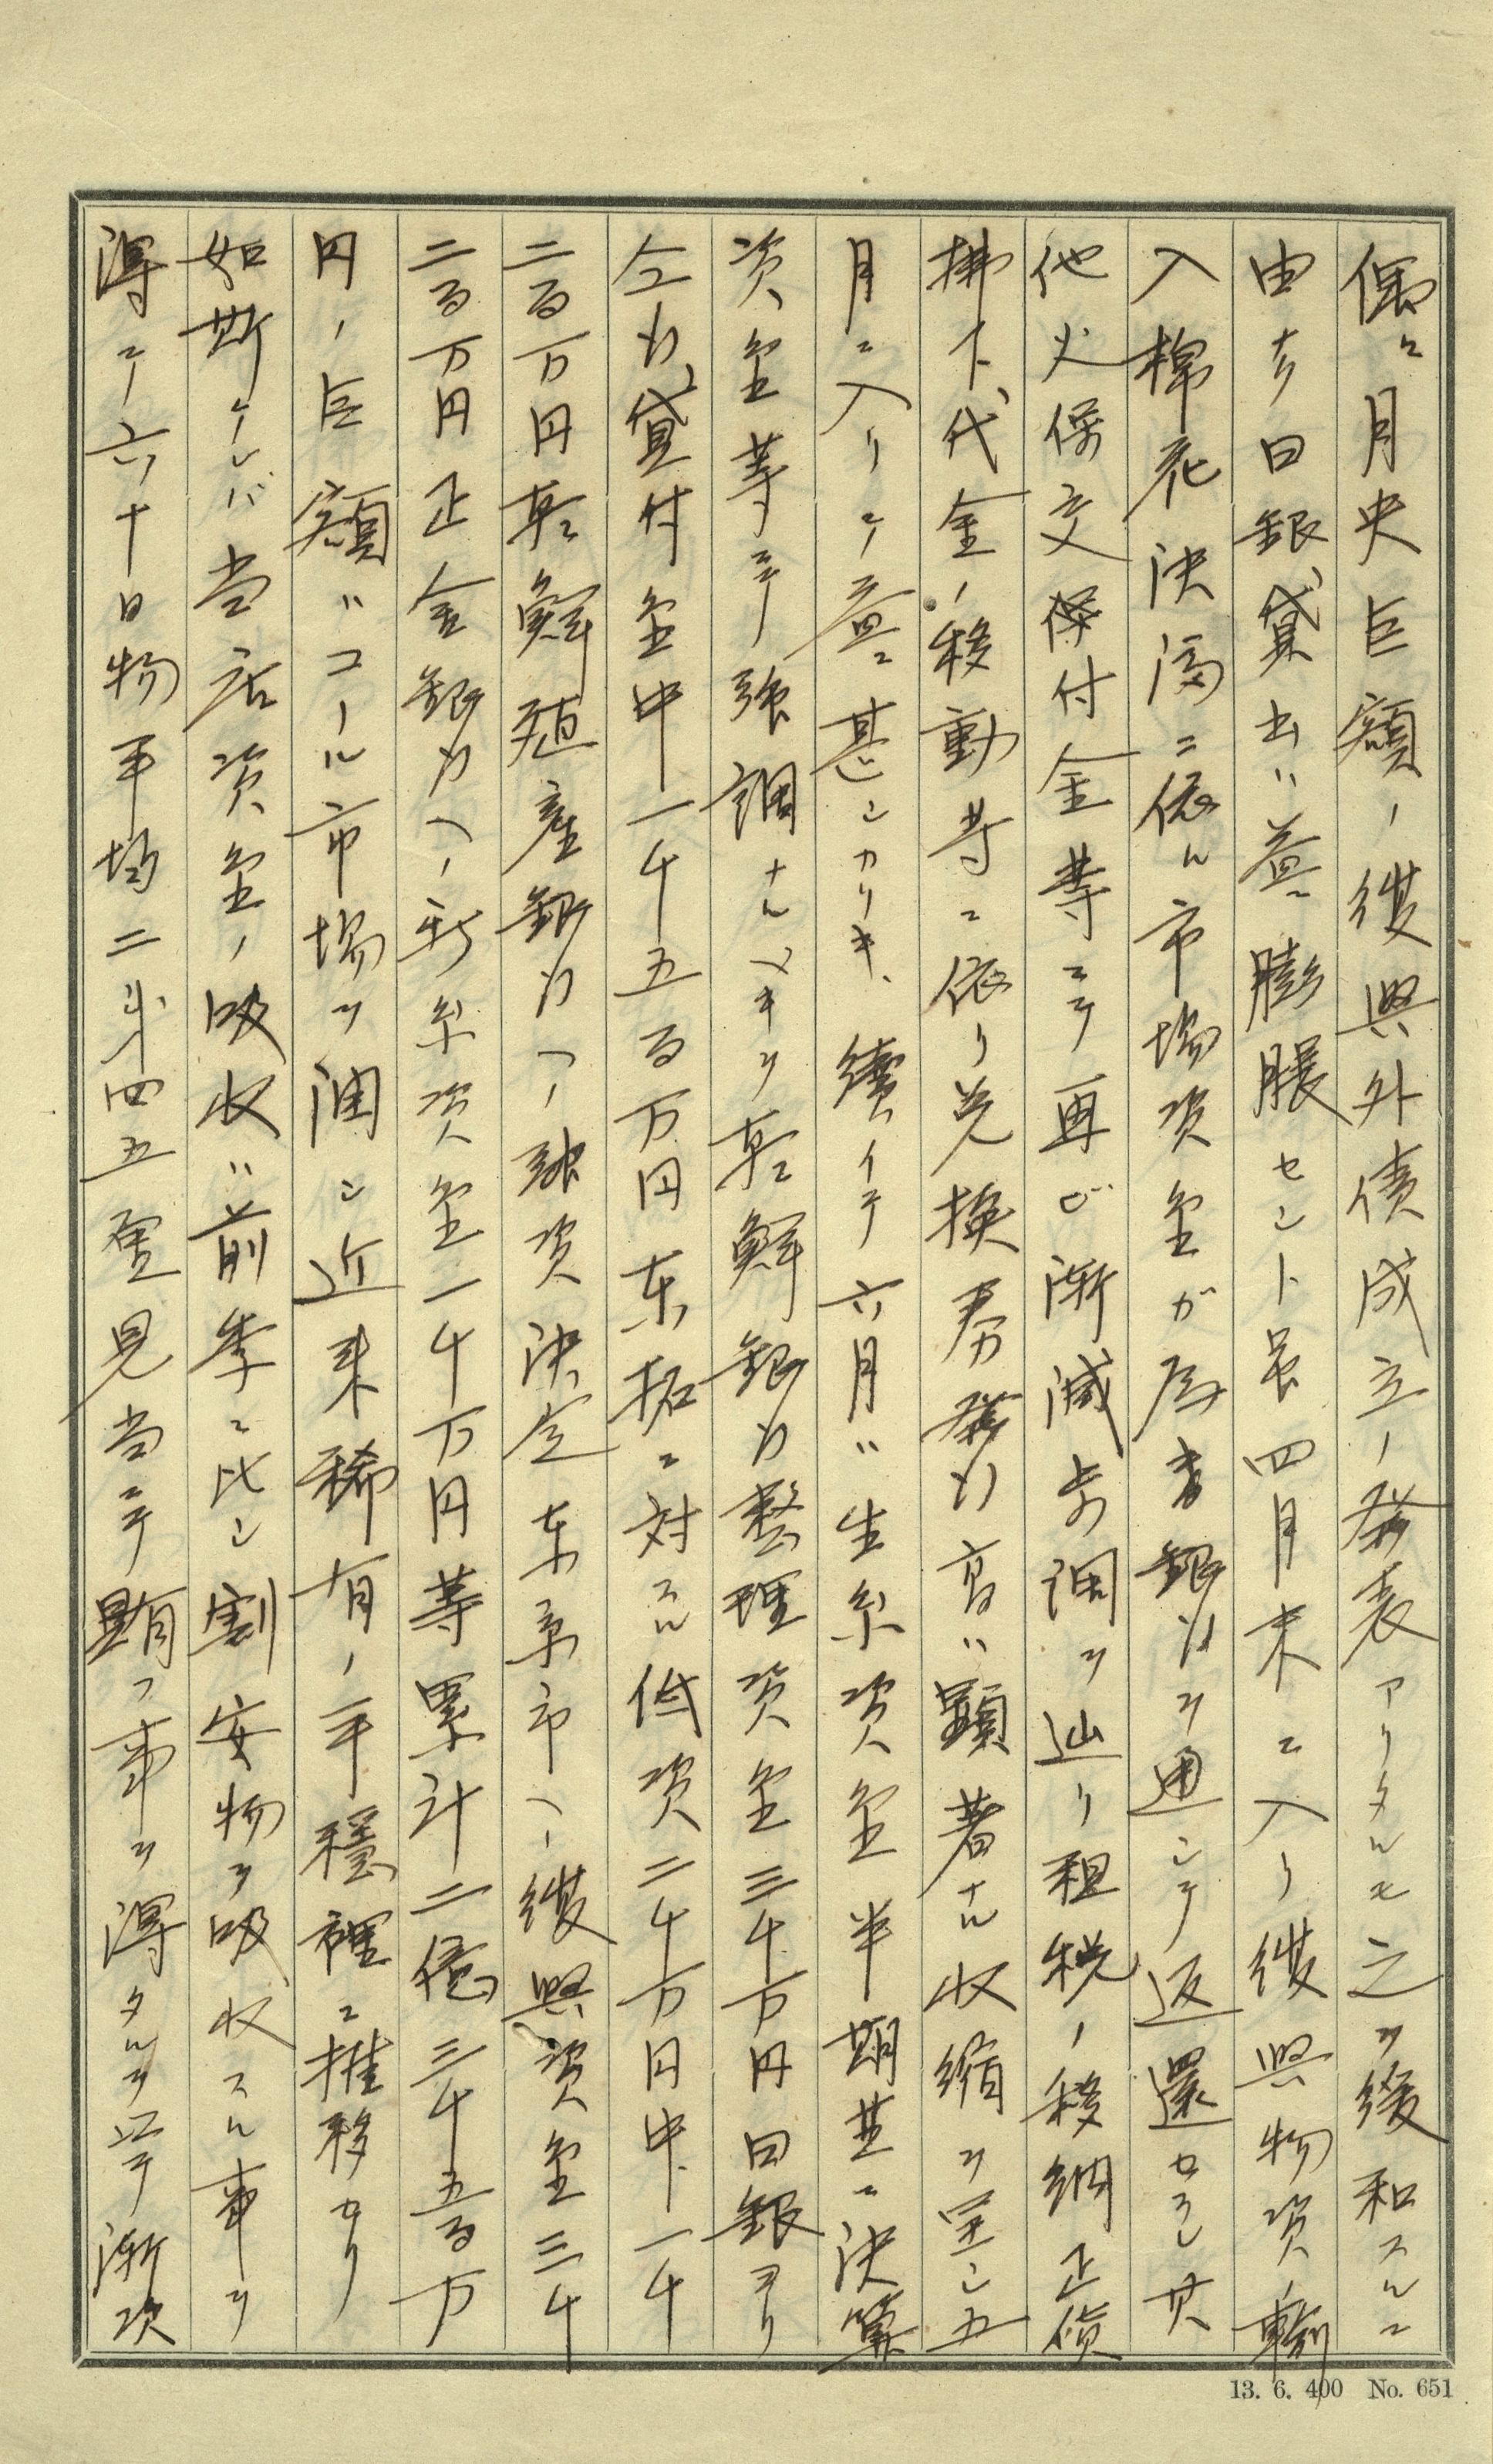 偶々月央巨額ノ復興外債成立ノ発表アリタルモ之ヲ緩和スルニ
由ナク日銀貸出ハ益々膨脹セントス四月末ニ入リ復興物資ノ輸
入棉花決済ニ依ル市場資金ガ為替銀行ヲ通シテ返還セラレ其
他火保交付金等ニテ再ビ漸減歩調ヲ辿リ租税ノ移納正貨
拂下代金ノ移動等ニ依リ兌換券発行高ハ顕著ナル収縮ヲ呈シ五
月ニ入リテ益々甚シカリキ、續イテ六月ハ生糸資金半期末決算
資金等ニテ強調ナルベキヲ朝鮮銀行整理資金三千万円日銀ヨリ
仝行貸付金中一千五百万円東拓ニ対スル低資二千万円中一千
二百万円朝鮮殖産銀行ヘノ融資決定東京市ヘノ復興資金三千
二百万円正金銀行ヘノ新糸資金一千万円等累計二億三千五百万
円ノ巨額ハコール市場ヲ潤シ近来稀有ノ平穏裡ニ推移セリ
如斯ケレバ当店資金ノ吸収ハ前季ニ比シ割安物ヲ吸収スル事ヲ
得テ六十日物平均二銭四五厘見当ニテ賄フ事ヲ得タルヲ以テ漸次
13. 6. 400 No. 651